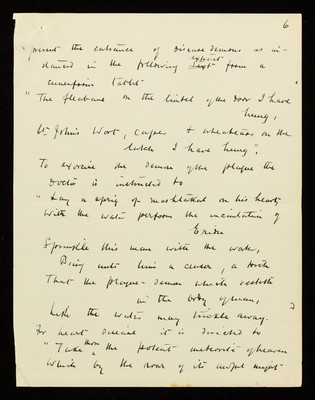 6
prevent the entrance of disease demons as in-
stanced in the following extract from a
cuneiform tablet
"The fleabane on the lintel of the door I have
hung,
St John's Wort, caper & wheatears on the
latch I have hung".
To exorcise the demon of the plague the
Doctor is instructed to
"Lay a sprig of mashtakal on his heart
With the water perform the incantation of
Eridu
Sprinkle this man with the water,
Bring unto him a censer, a torch
That the plague-demon which resteth
in the body of man,
Like the water may trickle away.
For heart disease it is directed to
"Take thou the potent meteorite of heaven
Which by the roar of its awful might